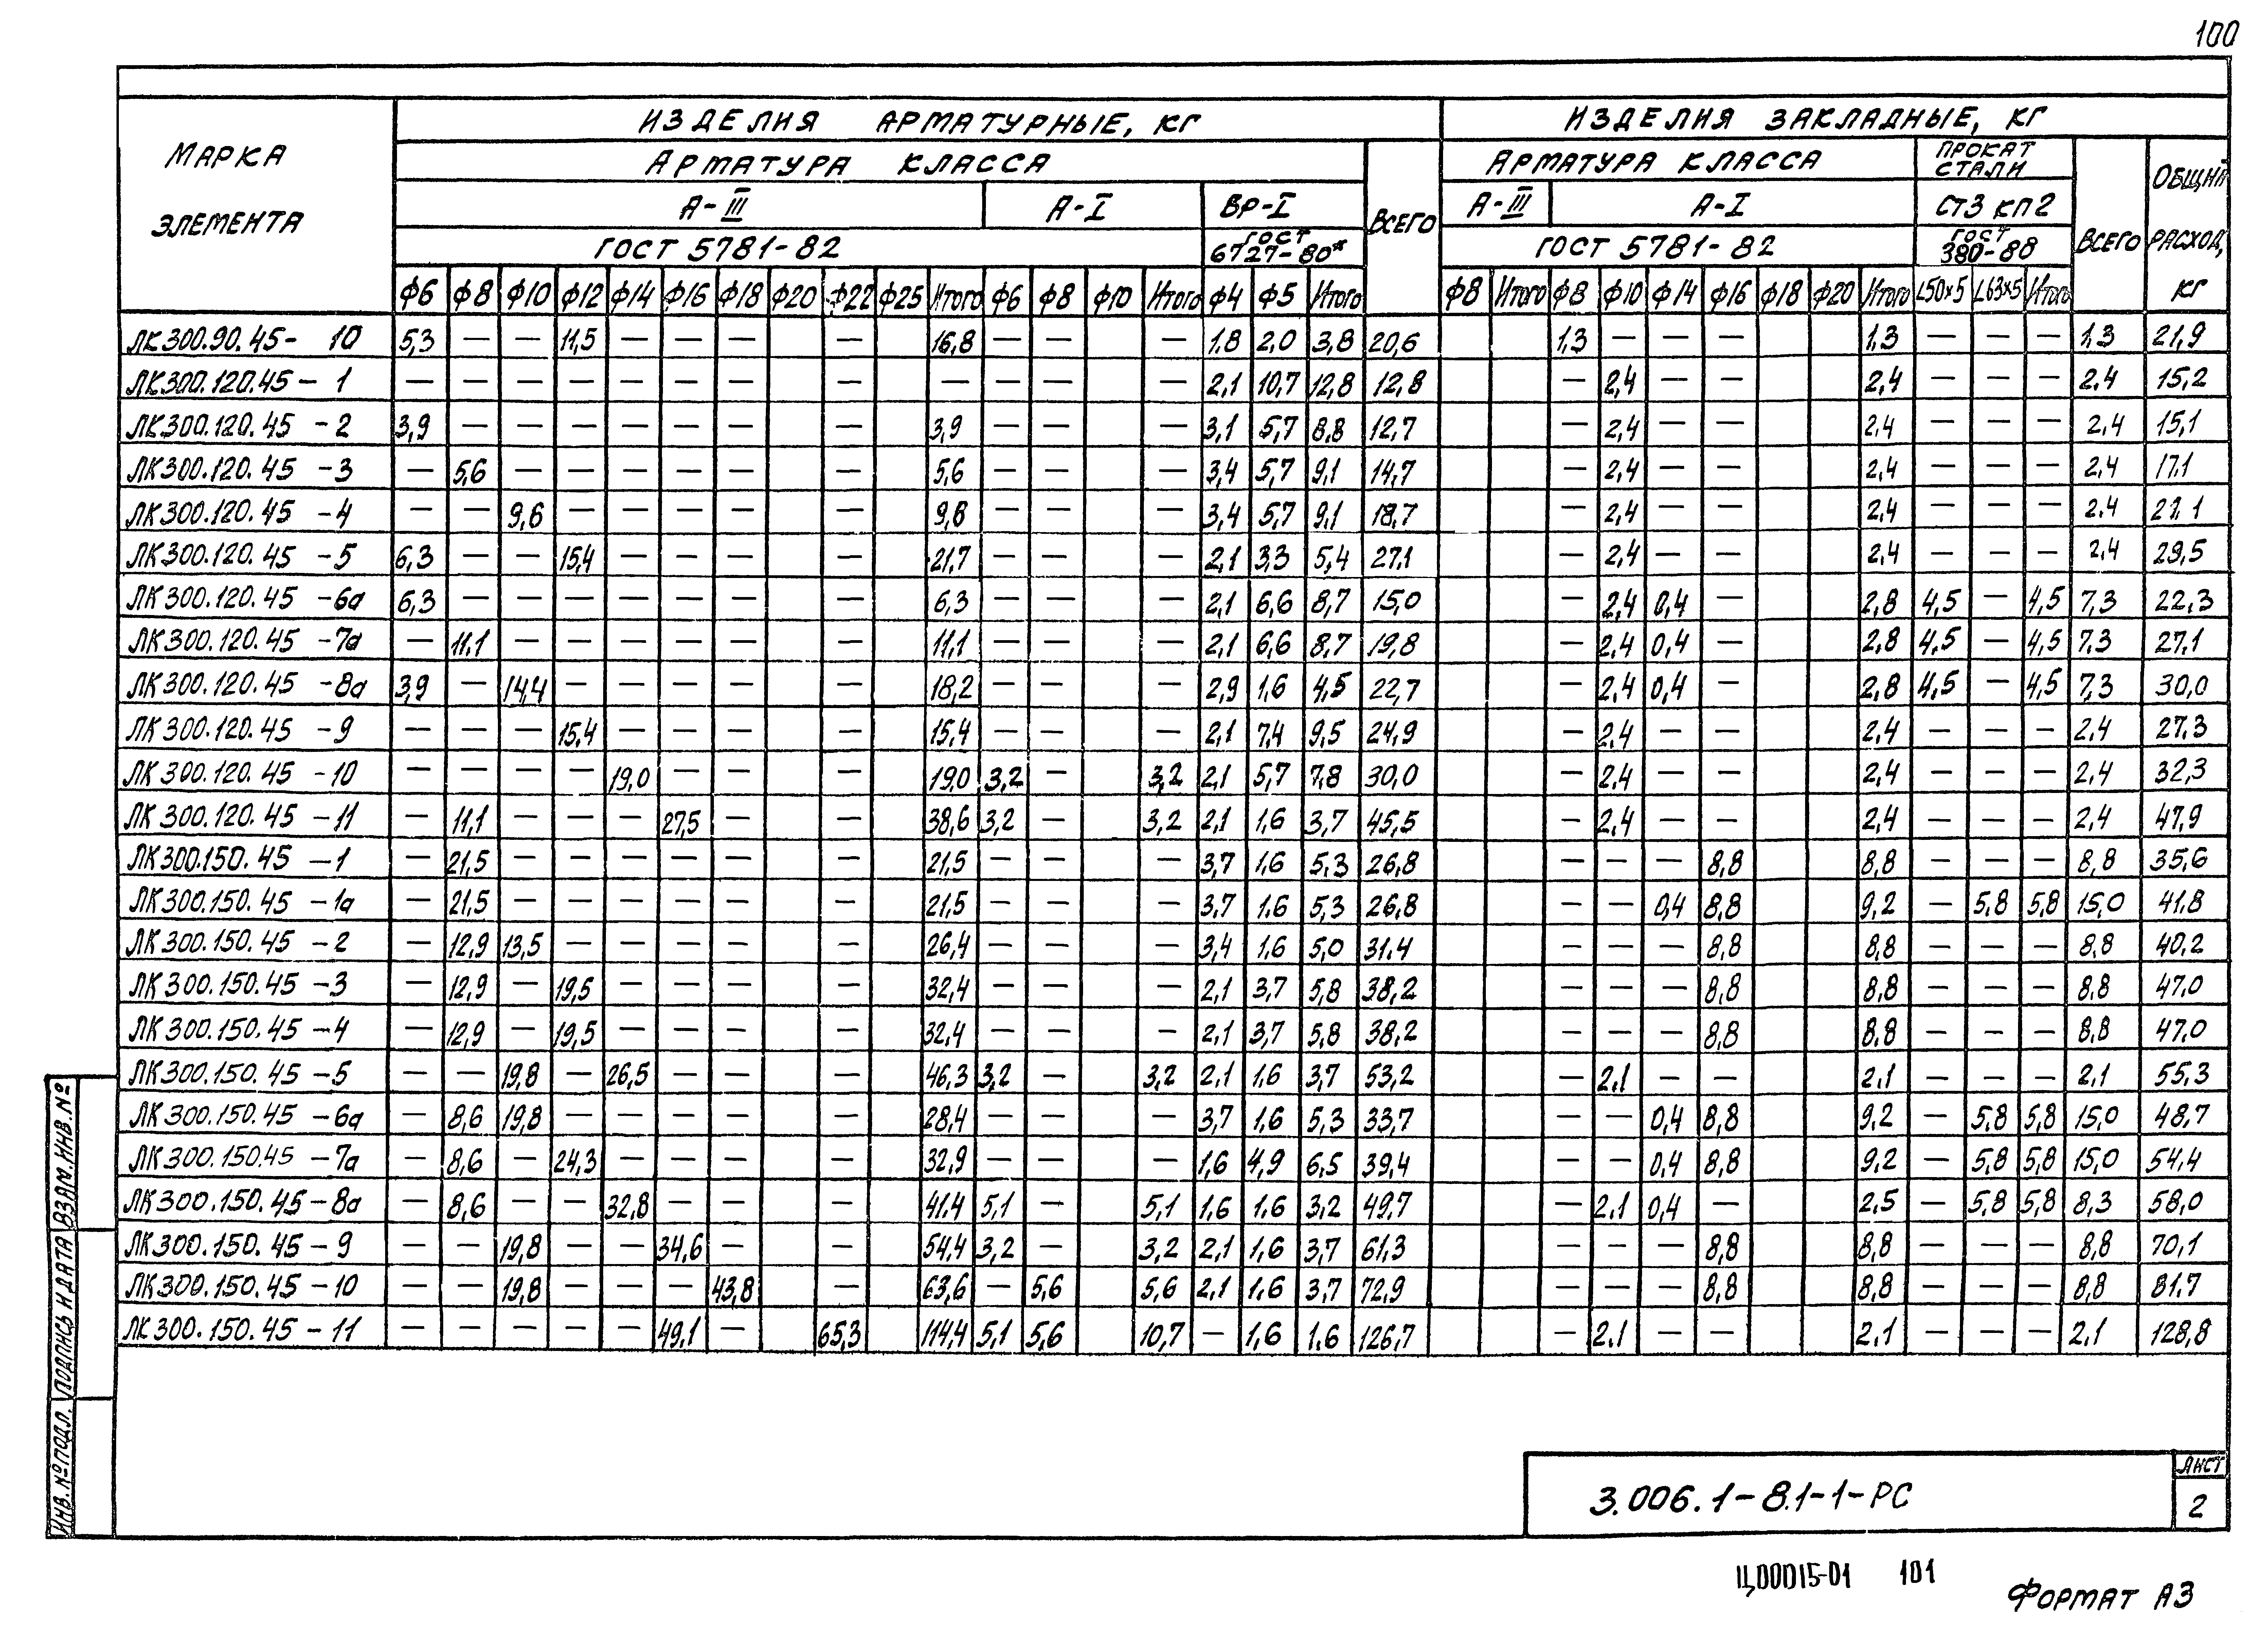 100
ИЗДЕЛИЯ АРМАТУРНЫЕ, КГ ИЗДЕЛИЯ ЗАКЛАДНЫЕ, КГ
МАРКА ЭЛЕМЕНТА АРМАТУРА КЛАССА ВСЕГО АРМАТУРА КЛАССА ПРОКАТ СТАЛИ ВСЕГО ОБЩИЙ РАСХОД, КГ
А-III А-I ВР-I А-III А-I СТ3 КП2
ГОСТ 5781-82 ГОСТ 6727-80* ГОСТ 5781-82 ГОСТ 380-88
Ф6 Ф8 Ф10 Ф12 Ф14 Ф16 Ф18 Ф20 Ф22 Ф25 Итого Ф6 Ф8 Ф10 Итого Ф4 Ф5 Итого Ф8 Итого Ф8 Ф10 Ф14 Ф16 Ф18 Ф20 Итого L50×5 L63×5 Итого
ЛК300.90.45- 10 5,3 — — 11,5 — — — — 16,8 — — — 1.8 2.0 3,8 20,6 1,3 — — — 1.3 — — — 1,3 21,9
ЛК300.120.45- 1 — — — — — — — — — — — — 2,1 10,7 12,8 12,8 — 2,4 — — 2,4 — — — 2.4 15,2
ЛК300.120.45 -2 3,9 — — — — — — — 3,9 — — — 3,1 5,7 8,8 12,7 — 2,4 — — 2,4 — — — 2,4 15,1
ЛК300.120.45 -3 — 5,6 — — — — — — 5,6 — — — 3,4 5,7 9,1 14,7 — 2,4 — — 2,4 — — — 2,4 17,1
ЛК300.120.45 -4 — — 9,6 — — — — — 9,6 — — — 3,4 5,7 9,1 18,7 — 2,4 — — 2,4 — — — 2,4 21.1
ЛК300.120.45 -5 6,3 — — 15,4 — — — — 21,7 — — — 2,1 3,3 5,4 27,1 — 2,4 — — 2,4 — — — 2,4 29,5
ЛК300.120.45 -6а 6,3 — — — — — — — 6,3 — — — 2,1 6,6 8,7 15,0 — 2,4 0,4 — 2,8 4,5 — 4,5 7,3 22,3
ЛК300.120.45 -7а — 11,1 — — — — — — 11,1 — — — 2,1 6,6 8,7 19,8 — 2,4 0,4 — 2,8 4,5 — 4,5 7,3 27,1
ЛК300.120.45 -8а 3,9 — 14,4 — — — — — 18,2 — — — 2,9 1,6 4,5 22,7 — 2,4 0,4 — 2,8 4,5 — 4,5 7,3 30,0
ЛК300.120.45 -9 — — — 15,4 — — — — 15,4 — — — 2,1 7,4 9,5 24,9 — 2,4 — — 2,4 — — — 2,4 27,3
ЛК300.120.45 -10 — — — — 19,0 — — — 19,0 3,2 — 3,2 2,1 5,7 7,8 30,0 — 2,4 — — 2,4 — — — 2,4 32,3
ЛК300.120.45 -11 — 11,1 — — — 27,5 — — 38,6 3,2 — 3,2 2,1 1,6 3,7 45,5 — 2,4 — — 2,4 — — — 2,4 47,9
ЛК300.150.45 -1 — 21,5 — — — — — — 21,5 — — — 3,7 1,6 5,3 26,8 — — — 8,8 8,8 — — — 8,8 35,6
ЛК300.150.45 -1а — 21,5 — — — — — — 21,5 — — — 3,7 1.6 5,3 26,8 — — 0,4 8,8 9,2 — 5,8 5,8 15,0 41,8
ЛК300.150.45 -2 — 12,9 13,5 — — — — — 26,4 — — — 3,4 1.6 5,0 31.4 — — — 8,8 8,8 — — — 8,8 40,2
ЛК300.150.45 -3 — 12,9 — 19,5 — — — — 32,4 — — — 2,1 3,7 5,8 38,2 — — — 8,8 8,8 — — — 8,8 47.0
ЛК300.150.45 -4 — 12,9 — 19,5 — — — — 32,4 — — — 2,1 3,7 5,8 38,2 — — — 8,8 8,8 — — — 8,8 47,0
ЛК300.150.45 -5 — — 19,8 — 26,5 — — — 46,3 3,2 — 3,2 2,1 1.6 3,7 53,2 — 2,1 — — 2,1 — — — 2,1 55,3
ЛК300.150.45 -6а — 8,6 19,8 — — — — — 28,4 — — — 3,7 1,6 5,3 33,7 — — 0,4 8,8 9,2 — 5,8 5,8 15,0 48,7
ЛК300.150.45 -7а — 8,6 — 24,3 — — — — 32,9 — — — 1,6 4,9 6,5 39,4 — — 0,4 8,8 9,2 — 5,8 5,8 15,0 54,4
ЛК300.150.45-8а — 8,6 — — 32,8 — — — 41.4 5,1 — 5,1 1,6 1.6 3,2 49,7 — 2.1 0,4 — 2,5 — 5,8 5,8 8,3 58,0
ЛК300.150.45 -9 — — 19,8 — — 34,6 — — 54,4 3,2 — 3,2 2,1 1,6 3,7 61,3 — — — 8,8 8,8 — — — 8,8 70,1
ЛК300.150.45 -10 — — 19,8 — — — 43,8 — 63,6 — 5,6 5,6 2,1 1,6 3,7 72,9 — — — 8,8 8,8 — — — 8,8 81,7
ЛК300.150.45 -11 — — — — — 49,1 — 65,3 114,4 5,1 5,6 10,7 — 1,6 1.6 126,7 — 2.1 — — 2.1 — — — 2,1 128,8
ИНВ. № ПОДЛ. ПОДПИСЬ И ДАТА ВЗАМ. ИНВ. №
3.006.1-8.1-1-РС
ЛИСТ
2
Ц00015-01 101
ФОРМАТ А3